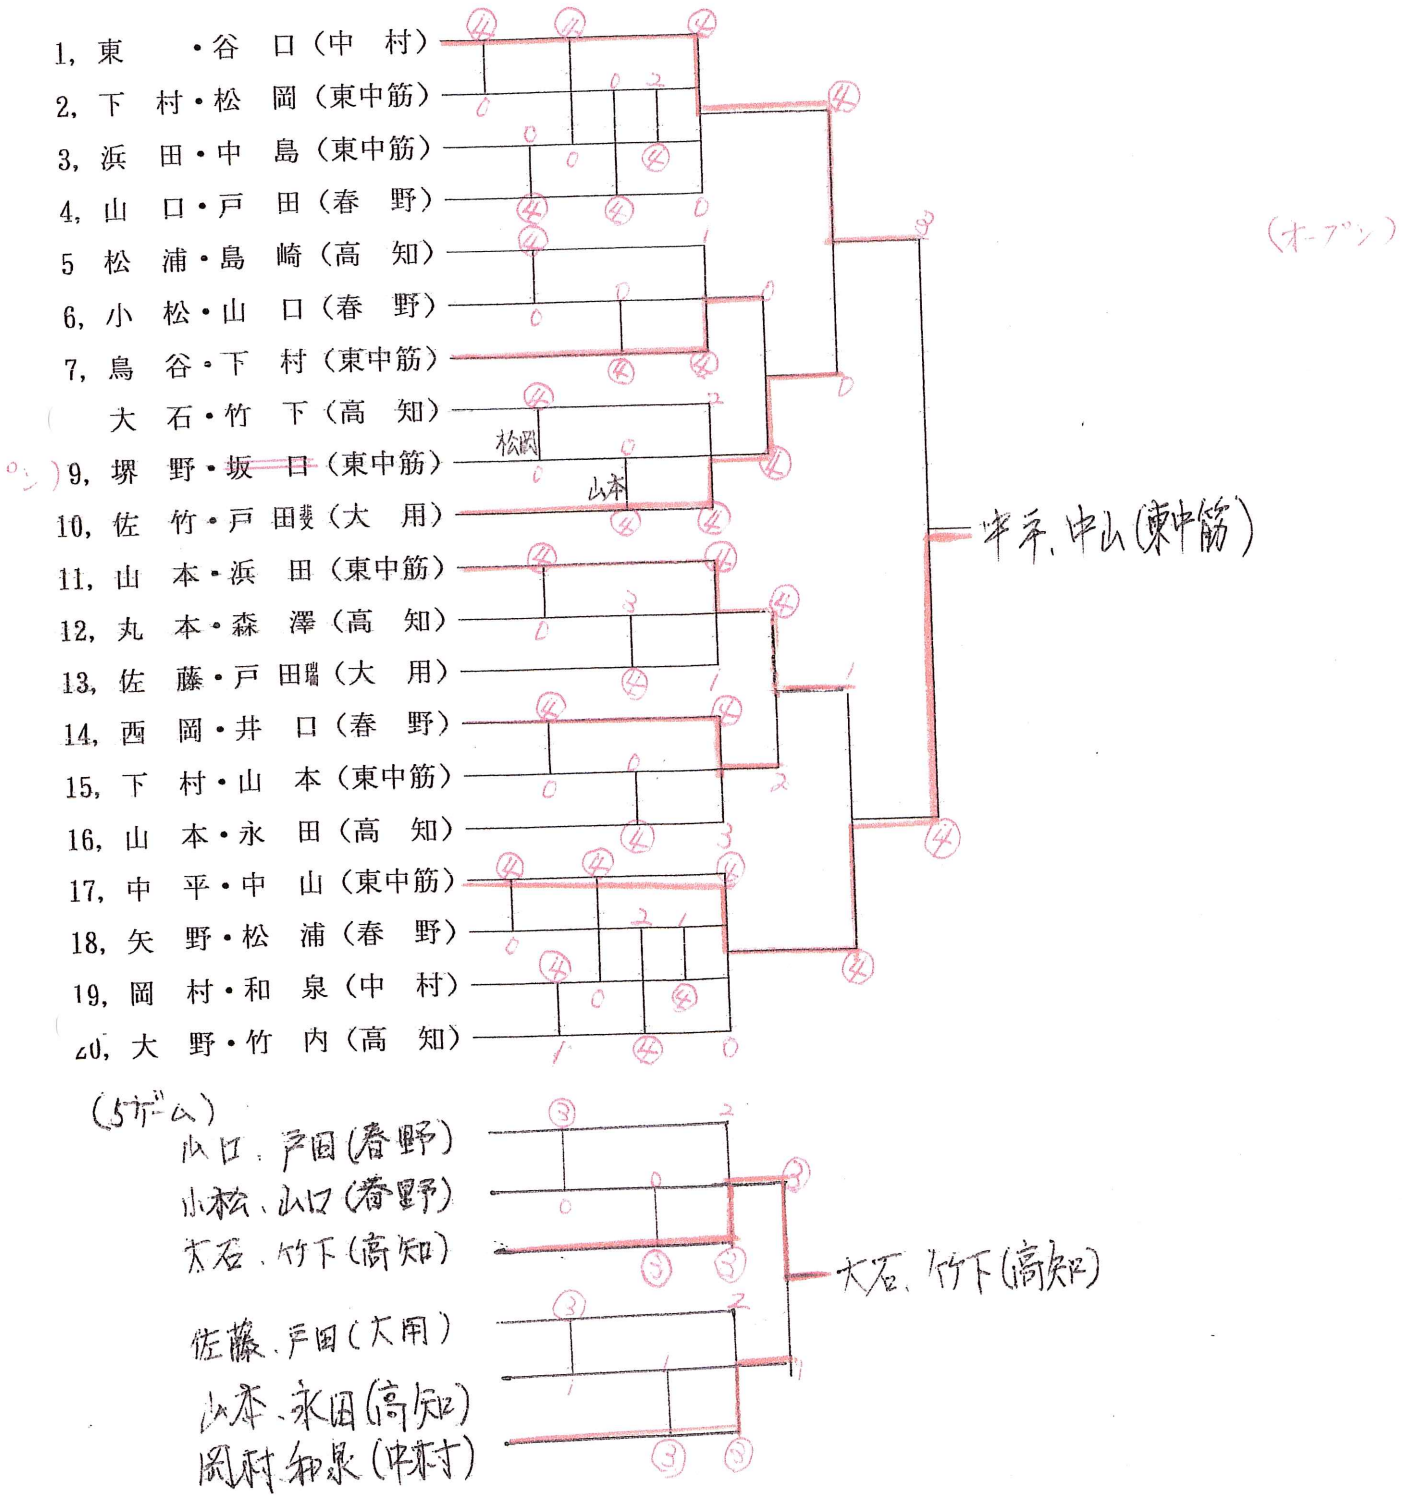 1, 東 ・谷 口（中 村）
2, 下 村・松 岡（東中筋）
3, 浜 田・中 島（東中筋）
4, 山 口・戸 田（春 野）
5 松 浦・島 崎（高 知）
6, 小 松・山 口（春 野）
7, 鳥 谷・下 村（東中筋）
大 石・竹 下（高 知）
9, 堺 野・坂 口（東中筋）
松岡
10, 佐 竹・戸 田（大 用）
山本
11, 山 本・浜 田（東中筋）
12, 丸 本・森 澤（高 知）
13, 佐 藤・戸 田瑞（大 用）
14, 西 岡・井 口（春 野）
15, 下 村・山 本（東中筋）
16, 山 本・永 田（高 知）
17, 中 平・中 山（東中筋）
18, 矢 野・松 浦（春 野）
19, 岡 村・和 泉（中 村）
20, 大 野・竹 内（高 知）
(オープン)
中平、中山(東中筋)
(5ゲーム)
山口、戸田(春野)
小松、山口(春野)
大石、竹下(高知)
佐藤、戸田(大用)
山本、永田(高知)
岡村、和泉(中村)
大石、竹下(高知)